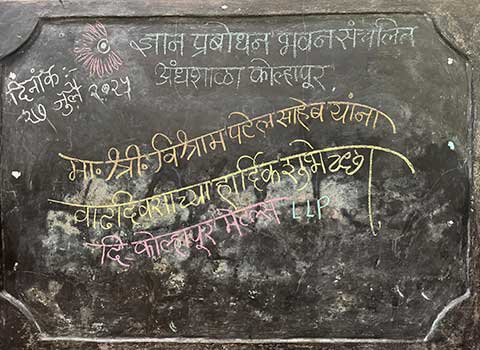 ज्ञान प्रबोधन भवन संचलित
अंधशाळा कोल्हापूर.
दिनांक :-
२७ जुलै २०२५
मा. श्री. विश्राम पटेल साहेब यांना
वाढदिवसाच्या हार्दिक शुभेच्छा
दि. कोल्हापूर मेटल्स LLP